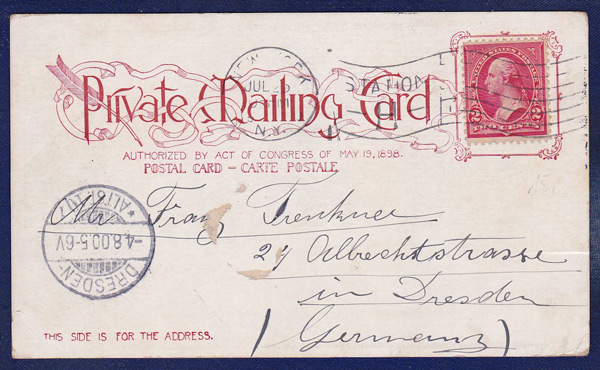 Private Mailing Card
AUTHORIZED BY ACT OF CONGRESS OF MAY 19, 1898.
POSTAL CARD – CARTE POSTALE
NEW YORK
JUL 26
N.Y.
STATION
UNITED STATES POSTAGE
2 2
TWO CENTS
Mr Franz Trenkner
27 Albrechtstrasse
in Dresden
(Germany)
DRESDEN-
-4.8.00.5-6V
* ALTST.
THIS SIDE IS FOR THE ADDRESS.